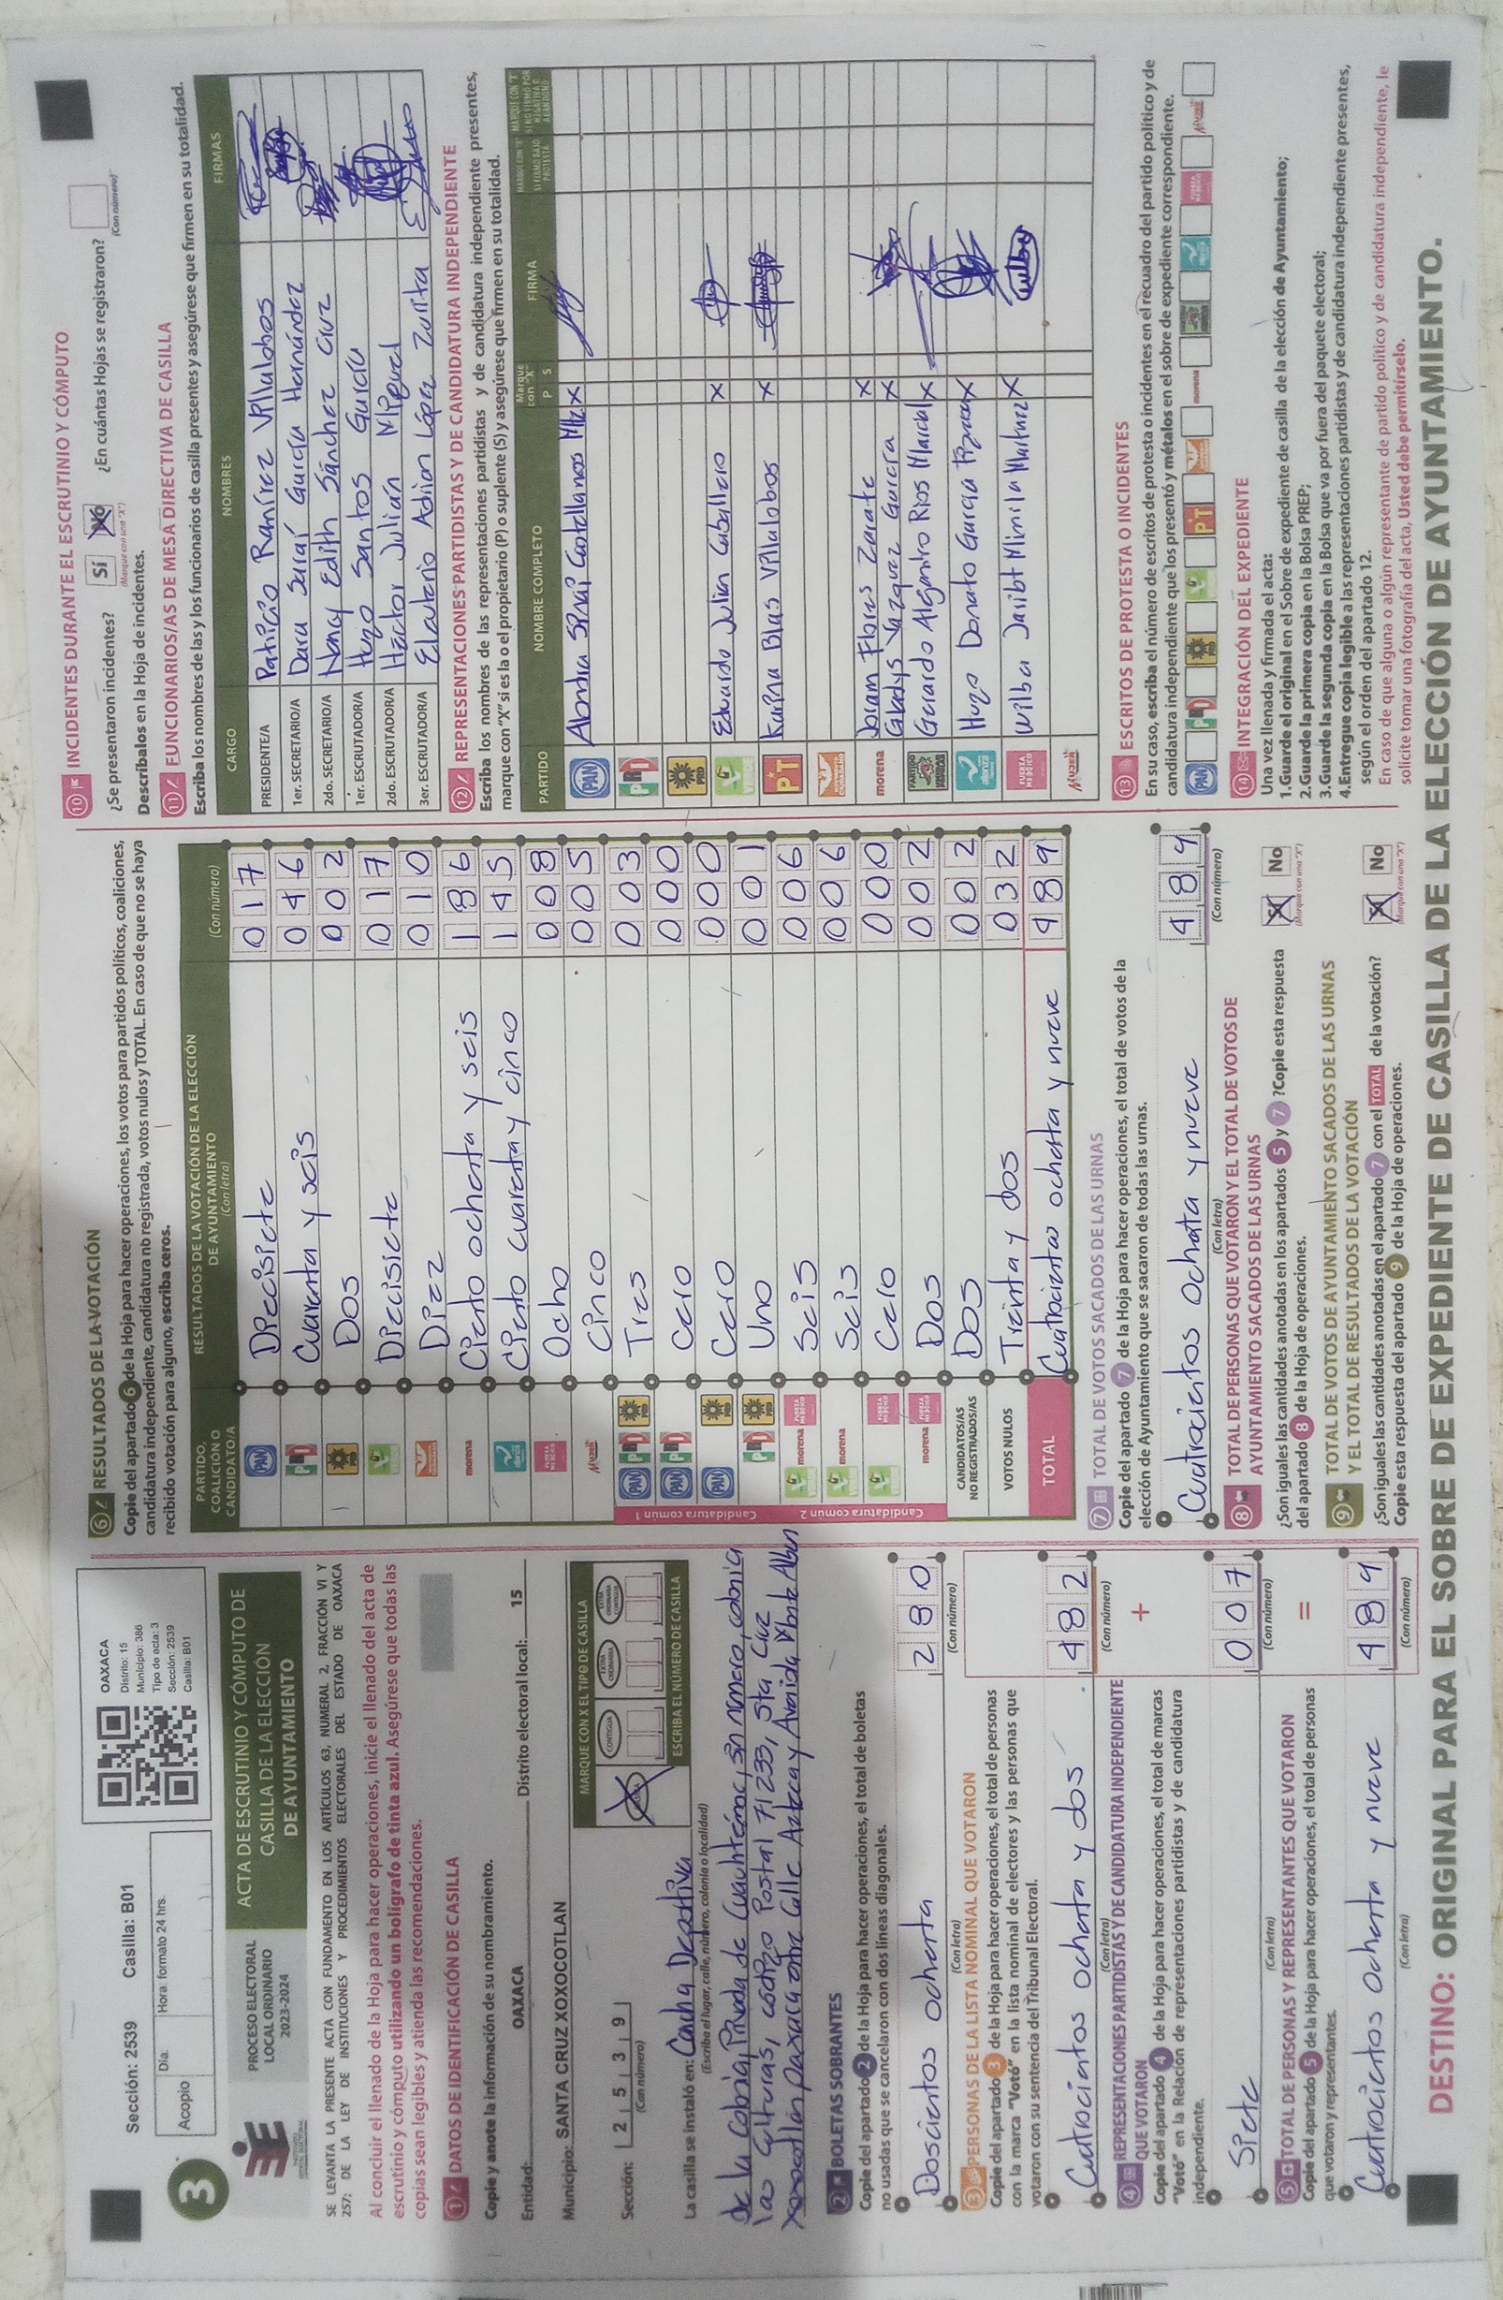 Sección: 2539 Casilla: B01
Acopio Día: Hora: formato 24 hrs.
OAXACA
Distrito: 15
Municipio: 386
Tipo de acta: 3
Sección: 2539
Casilla: B01
3
PROCESO ELECTORAL
LOCAL ORDINARIO
2023-2024
ACTA DE ESCRUTINIO Y CÓMPUTO DE
CASILLA DE LA ELECCIÓN
DE AYUNTAMIENTO
SE LEVANTA LA PRESENTE ACTA CON FUNDAMENTO EN LOS ARTÍCULOS 63, NUMERAL 2, FRACCIÓN VI Y
257; DE LA LEY DE INSTITUCIONES Y PROCEDIMIENTOS ELECTORALES DEL ESTADO DE OAXACA
Al concluir el llenado de la Hoja para hacer operaciones, inicie el llenado del acta de
escrutinio y cómputo utilizando un bolígrafo de tinta azul. Asegúrese que todas las
copias sean legibles y atienda las recomendaciones.
1 DATOS DE IDENTIFICACIÓN DE CASILLA
Copie y anote la información de su nombramiento.
Entidad: OAXACA Distrito electoral local: 15
Municipio: SANTA CRUZ XOXOCOTLAN
Sección: 2 5 3 9
(Con número)
MARQUE CON X EL TIPO DE CASILLA
ESCRIBA EL NÚMERO DE CASILLA
La casilla se instaló en: Cancha Deportiva
(Escriba el lugar, calle, número, colonia o localidad)
de la Colonia, Privada de Cuauhtémoc, sin número, colonia
las culturas, código Postal 71233, Sta Cruz
Xoxocotlán Oaxaca entre Calle Azteca y Avenida Monte Alban
2 BOLETAS SOBRANTES
Copie del apartado 2 de la Hoja para hacer operaciones, el total de boletas
no usadas que se cancelaron con dos líneas diagonales.
Doscientos ochenta 2 8 0
(Con letra) (Con número)
3 PERSONAS DE LA LISTA NOMINAL QUE VOTARON
Copie del apartado 3 de la Hoja para hacer operaciones, el total de personas
con la marca "Votó" en la lista nominal de electores y las personas que
votaron con su sentencia del Tribunal Electoral.
Cutrocientos ochenta y dos 4 8 2
(Con letra) (Con número)
+
4 REPRESENTACIONES PARTIDISTAS Y DE CANDIDATURA INDEPENDIENTE
QUE VOTARON
Copie del apartado 4 de la Hoja para hacer operaciones, el total de marcas
"Votó" en la Relación de representaciones partidistas y de candidatura
independiente.
Siete 0 0 7
(Con letra) (Con número)
=
5 TOTAL DE PERSONAS Y REPRESENTANTES QUE VOTARON
Copie del apartado 5 de la Hoja para hacer operaciones, el total de personas
que votaron y representantes.
Cuatrocientos Ochenta y nueve 4 8 9
(Con letra) (Con número)
6 RESULTADOS DE LA VOTACIÓN
Copie del apartado 6 de la Hoja para hacer operaciones, los votos para partidos políticos, coaliciones,
candidatura independiente, candidatura no registrada, votos nulos y TOTAL. En caso de que no se haya
recibido votación para alguno, escriba ceros.
PARTIDO,
COALICIÓN O
CANDIDATO/A
RESULTADOS DE LA VOTACIÓN DE LA ELECCIÓN
DE AYUNTAMIENTO
(Con letra) (Con número)
PAN Diecisiete 0 1 7
PRI Cuarenta y seis 0 4 6
PRD Dos 0 0 2
VERDE Diecisiete 0 1 7
Diez 0 1 0
morena Ciento ochenta y seis 1 8 6
Ciento cuarenta y cinco 1 4 5
FUERZA MÉXICO Ocho 0 0 8
MUJER Cinco 0 0 5
Candidatura común 1
PAN PRI PRD Tres 0 0 3
PAN PRI Cero 0 0 0
PAN PRD Cero 0 0 0
PRI PRD Uno 0 0 1
Candidatura común 2
VERDE morena FUERZA MÉXICO Seis 0 0 6
VERDE morena Seis 0 0 6
VERDE FUERZA MÉXICO Cero 0 0 0
morena FUERZA MÉXICO Dos 0 0 2
CANDIDATOS/AS
NO REGISTRADOS/AS Dos 0 0 2
VOTOS NULOS Treinta y dos 0 3 2
TOTAL Cuatrocientos ochenta y nueve 4 8 9
7 TOTAL DE VOTOS SACADOS DE LAS URNAS
Copie del apartado 7 de la Hoja para hacer operaciones, el total de votos de la
elección de Ayuntamiento que se sacaron de todas las urnas.
Cuatrocientos Ochenta y nueve 4 8 9
(Con letra) (Con número)
8 TOTAL DE PERSONAS QUE VOTARON Y EL TOTAL DE VOTOS DE
AYUNTAMIENTO SACADOS DE LAS URNAS
¿Son iguales las cantidades anotadas en los apartados 5 y 7? Copie esta respuesta
del apartado 8 de la Hoja de operaciones.
Sí No
(Marque con una "X")
9 TOTAL DE VOTOS DE AYUNTAMIENTO SACADOS DE LAS URNAS
Y EL TOTAL DE RESULTADOS DE LA VOTACIÓN
¿Son iguales las cantidades anotadas en el apartado 7 con el TOTAL de la votación?
Copie esta respuesta del apartado 9 de la Hoja de operaciones.
Sí No
(Marque con una "X")
10 INCIDENTES DURANTE EL ESCRUTINIO Y CÓMPUTO
¿Se presentaron incidentes? Sí No ¿En cuántas Hojas se registraron?
(Marque con una "X") (Con número)
Descríbalos en la Hoja de incidentes.
11 FUNCIONARIOS/AS DE MESA DIRECTIVA DE CASILLA
Escriba los nombres de las y los funcionarios de casilla presentes y asegúrese que firmen en su totalidad.
CARGO NOMBRES FIRMAS
PRESIDENTE/A Patricio Ramírez Villalobos
1er. SECRETARIO/A Dara Saraí García Hernández
2do. SECRETARIO/A Nancy Edith Sánchez Cruz
1er. ESCRUTADOR/A Hugo Santos García
2do. ESCRUTADOR/A Héctor Julián Miguel
3er. ESCRUTADOR/A Eleuterio Adrian López Zurita
12 REPRESENTACIONES PARTIDISTAS Y DE CANDIDATURA INDEPENDIENTE
Escriba los nombres de las representaciones partidistas y de candidatura independiente presentes,
marque con "X" si es la o el propietario (P) o suplente (S) y asegúrese que firmen en su totalidad.
PARTIDO NOMBRE COMPLETO Marque con "X" P S FIRMA MARQUE CON "X" SI FIRMÓ BAJO PROTESTA MARQUE CON "X" SI NO FIRMÓ POR NEGATIVA O ABANDONO
PAN Abondra Sinaí Castellanos Mtz X
PRI
PRD
VERDE Eduardo Julian Caballero X
PT Karina Blas Villalobos X
MOVIMIENTO CIUDADANO
morena Joram Flores Zarate X
Gladys Vazquez García X
Gerardo Alejandro Rios Marcial X
Hugo Donato García X
FUERZA MÉXICO Wilba Jaribt Mimila Martinez X
MUJER
13 ESCRITOS DE PROTESTA O INCIDENTES
En su caso, escriba el número de escritos de protesta o incidentes en el recuadro del partido político y de
candidatura independiente que los presentó y métalos en el sobre de expediente correspondiente.
PAN PRI PRD VERDE PT morena FUERZA MÉXICO MUJER
14 INTEGRACIÓN DEL EXPEDIENTE
Una vez llenada y firmada el acta:
1.Guarde el original en el Sobre de expediente de casilla de la elección de Ayuntamiento;
2.Guarde la primera copia en la Bolsa PREP;
3.Guarde la segunda copia en la Bolsa que va por fuera del paquete electoral;
4.Entregue copia legible a las representaciones partidistas y de candidatura independiente presentes,
según el orden del apartado 12.
En caso de que alguna o algún representante de partido político y de candidatura independiente, le
solicite tomar una fotografía del acta, Usted debe permitírselo.
DESTINO: ORIGINAL PARA EL SOBRE DE EXPEDIENTE DE CASILLA DE LA ELECCIÓN DE AYUNTAMIENTO.